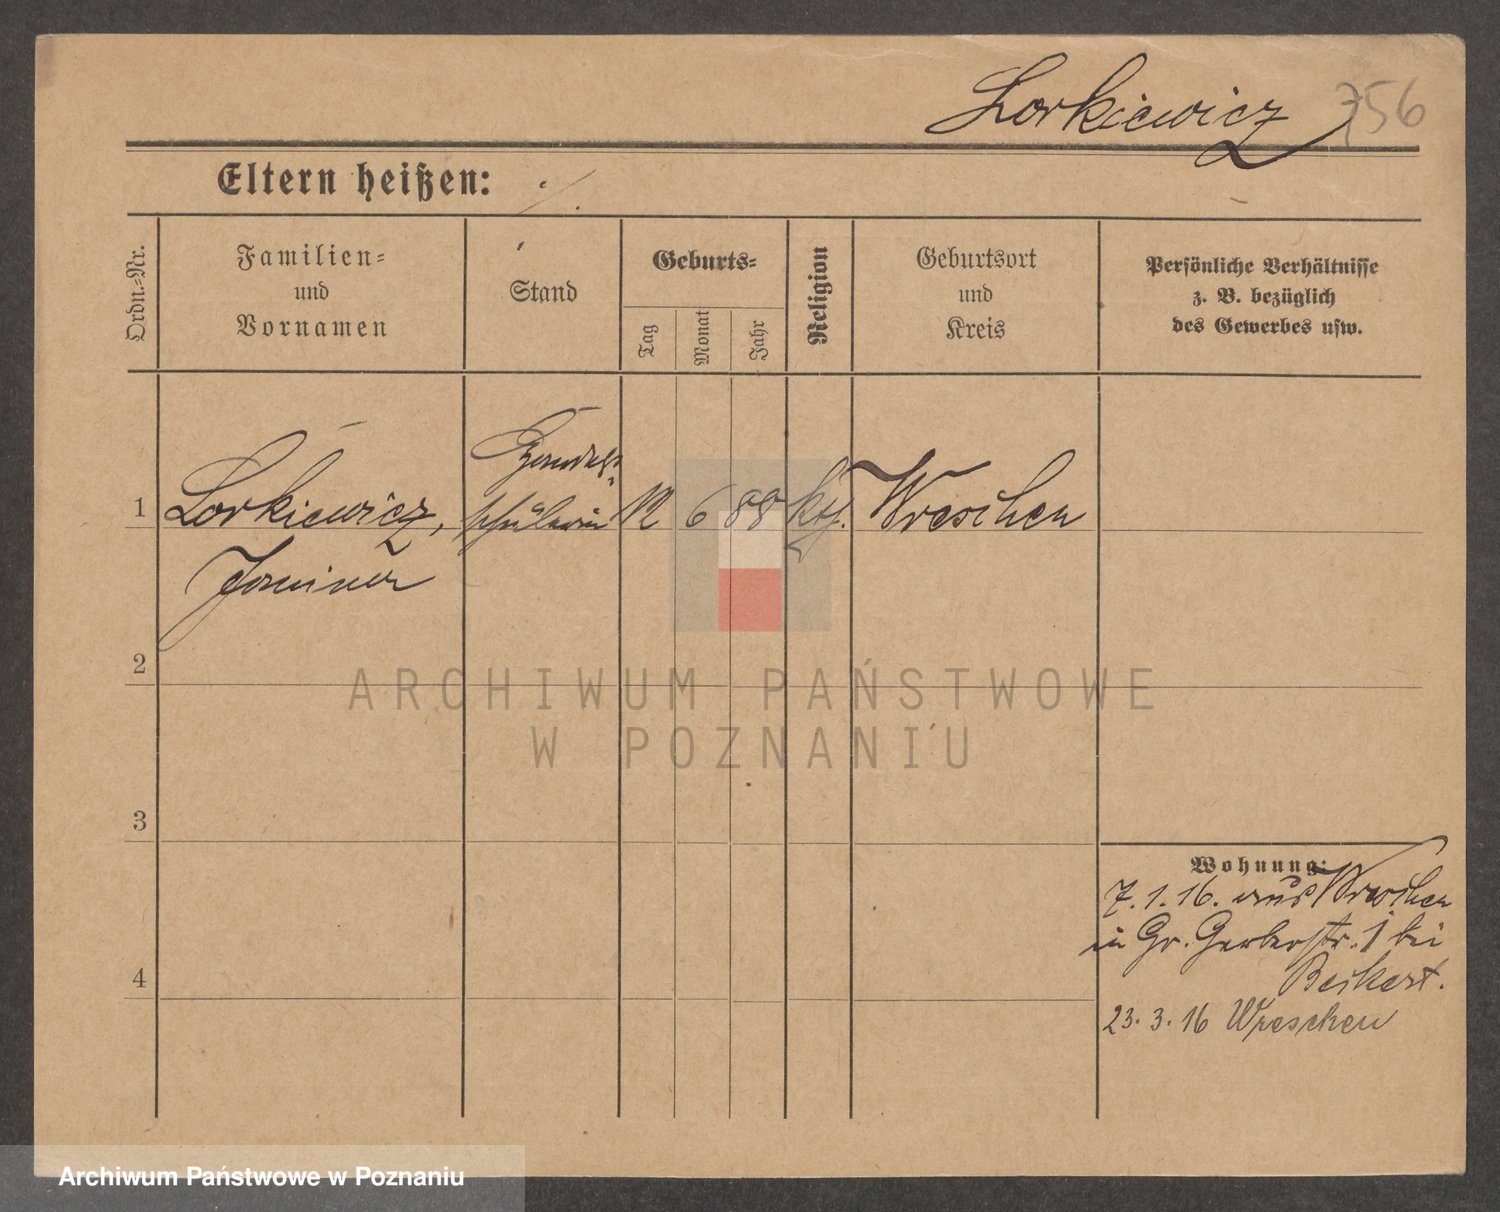 Lorkiewicz
756
Eltern heißen: ·/.
Ordn.-Nr.
Familien-
und
Vornamen
Stand
Geburts-
Tag
Monat
Jahr
Religion
Geburtsort
und
Kreis
Persönliche Verhältnisse
z. B. bezüglich
des Gewerbes usw.
Handels-
1 Lorkiewicz, schülerin 12 6 88 kth. Wreschen
Janina
2
3
4
Wohnung:
7. 1. 16. aus Wreschen
in Gr. Gerberstr. 1 bei
Beikert.
23. 3. 16 Wreschen
ARCHIWUM PAŃSTWOWE
W POZNANIU
Archiwum Państwowe w Poznaniu